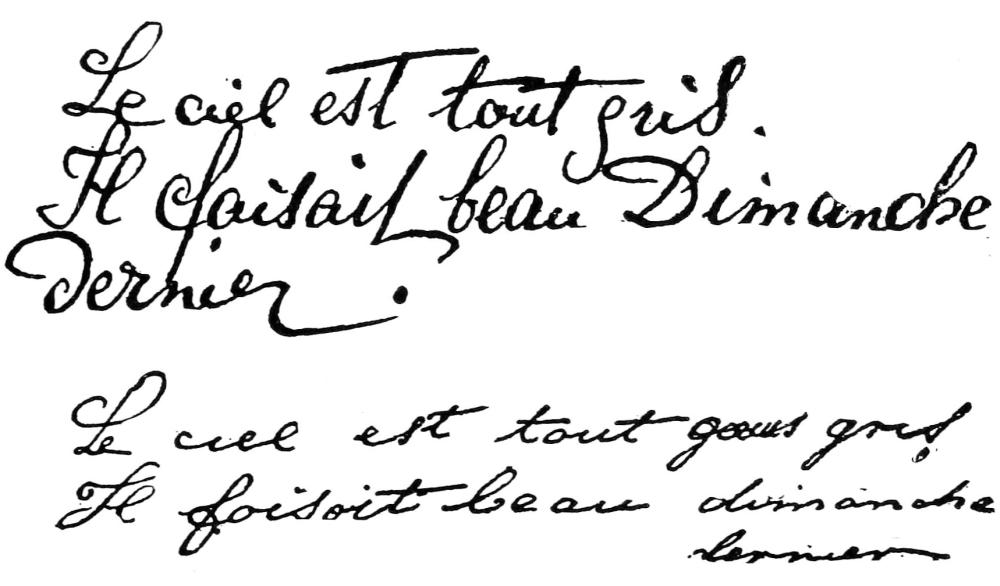 Le ciel est tout gris.
Il faisait beau Dimanche
Dernier.
Le ciel est tout gris
Il faisait beau dimanche
dernier